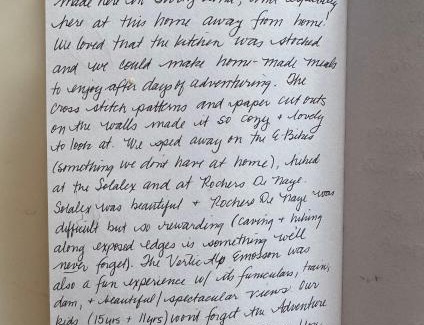 made here in
here at this home away from home!
We loved that the kitchen was stocked
and we could make home-made meals
to enjoy after days of adventuring. The
cross stitch patterns and paper cut outs
on the walls made it so cozy + lovely
to look at. We sped away on the E-Bikes
(something we dont have at home), hiked
at the Solalex and at Rochers De Naye.
Solalex was beautiful + Rochers De Naye was
difficult but so rewarding (caving + hiking
along exposed edges is something we'll
never forget). The Vertic Alp Emosson was
also a fun experience w/ its funiculars, train,
dam, + beautiful/spectacular views. Our
kids (15yrs + 11yrs) wont forget the Adventure